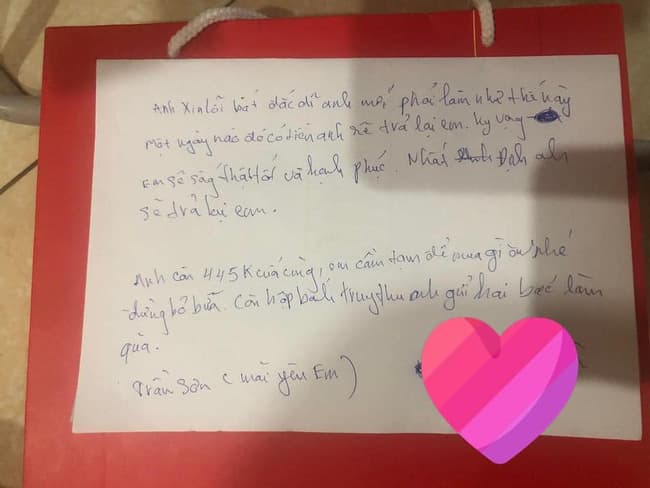 Anh xin lỗi bất đắc dĩ anh mới phải làm như thế này
Một ngày nào đó có tiền anh sẽ trả lại em. Hy vọng
Em sẽ sống thật tốt và hạnh phúc. Nhất Định anh
sẽ trả lại em.
Anh còn 445K cuối cùng, em cầm tạm để mua gì ăn nhé
đừng bỏ bữa. Còn hộp bánh trung thu anh gửi hai bác làm
quà.
Trần Sơn (mãi yêu Em)